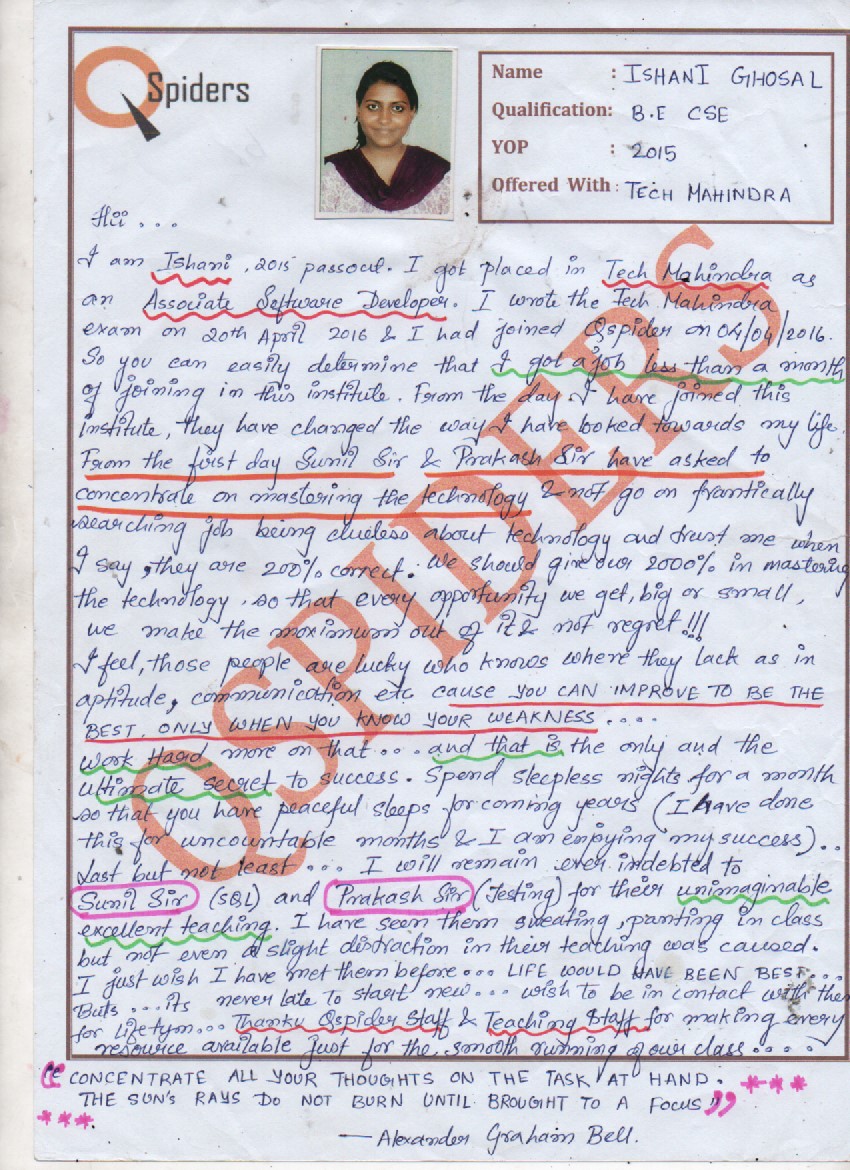 QSpiders
Name : ISHANI GHOSAL
Qualification: B.E CSE
YOP : 2015
Offered With : TECH MAHINDRA
Hii ...
I am Ishani, 2015 passout. I got placed in Tech Mahindra as
an Associate Software Developer. I wrote the Tech Mahindra
exam on 20th April 2016 & I had joined Qspider on 04/04/2016.
So you can easily determine that I got a job less than a month
of joining in this institute. From the day I have joined this
institute, they have changed the way I have looked towards my life.
From the first day Sunil Sir & Prakash Sir have asked to
concentrate on mastering the technology & not go on frantically
searching job being clueless about technology and trust me when
I say, they are 200% correct. We should give our 2000% in mastering
the technology, so that every opportunity we get, big or small,
we make the maximum out of it & not regret!!!
I feel, those people are lucky who knows where they lack as in
aptitude, communication etc cause YOU CAN IMPROVE TO BE THE
BEST, ONLY WHEN YOU KNOW YOUR WEAKNESS....
Work Hard more on that .... and that is the only and the
ultimate secret to success. Spend sleepless nights for a month
so that you have peaceful sleeps for coming years (I have done
this for uncountable months & I am enjoying my success)..
Last but not least .... I will remain ever indebted to
Sunil Sir (SQL) and Prakash Sir (Testing) for their unimaginable
excellent teaching. I have seen them sweating, panting in class
but not even a slight distraction in their teaching was caused.
I just wish I have met them before... LIFE WOULD HAVE BEEN BEST....
Buts ...its never late to start new... wish to be in contact with them
for lifetym... Thanku Qspider Staff & Teaching Staff for making every
resource available just for the, smooth running of our class....
"CONCENTRATE ALL YOUR THOUGHTS ON THE TASK AT HAND. ***
THE SUN'S RAYS DO NOT BURN UNTIL BROUGHT TO A FOCUS"
***
— Alexander Graham Bell.
QSPIDERS